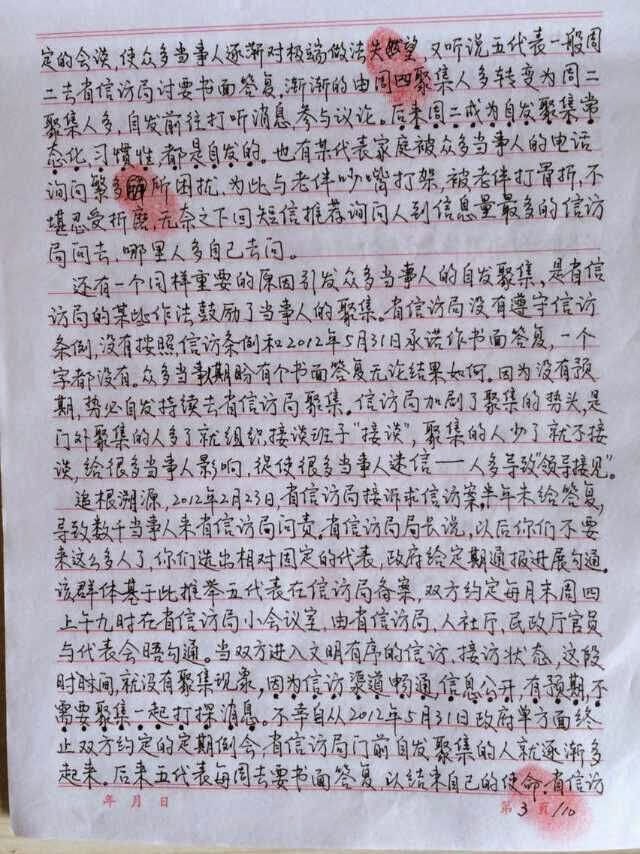 定的会谈，使众多当事人逐渐对极端做法失望，又听说五代表一般周
二去省信访局讨要书面答复，渐渐的由周四聚集人多转变为周二
聚集人多，自发前往打听消息，参与议论。后来周二成为自发聚集常
态化，习惯性，都是自发的。也有某代表家庭被众多当事人的电话
询问繁多所困扰，为此与老伴吵嘴打架，被老伴打骨折，不
堪忍受折磨，无奈之下回短信推荐询问人到信息量最多的信访
局问去，哪里人多自己去问。
还有一个同样重要的原因引发众多当事人的自发聚集，是省信
访局的某些作法鼓励了当事人的聚集。省信访局没有遵守信访
条例，没有按照信访条例和2012年5月31日承诺作书面答复，一个
字都没有。众多当事人期盼有个书面答复无论结果如何。因为没有预
期，势必自发持续去省信访局聚集。信访局加剧了聚集的势头，是
门外聚集的人多了就组织接谈班子“接谈”，聚集的人少了就不接
谈，给很多当事人影响，促使很多当事人迷信——人多导致“领导接见”。
追根溯源，2012年2月23日，省信访局接诉求信访案半年未给答复，
导致数千当事人来省信访局问责。省信访局局长说，以后你们不要
来这么多人了，你们选出相对固定的代表，政府给定期通报进展沟通。
该群体基于此推举五代表在信访局备案，双方约定每月末周四
上午九时在省信访局小会议室，由省信访局，人社厅，民政厅官员
与代表会晤沟通。当双方进入文明有序的信访、接访状态，这段
时间就没有聚集现象，因为信访渠道畅通，信息公开，有预期，不
需要聚集一起打探消息。不幸自从2012年5月31日政府单方面终
止双方约定的定期例会，省信访局门前自发聚集的人就逐渐多
起来。后来五代表每周去要书面答复，以结束自己的使命，省信访
年 月 日
第 3 页/10